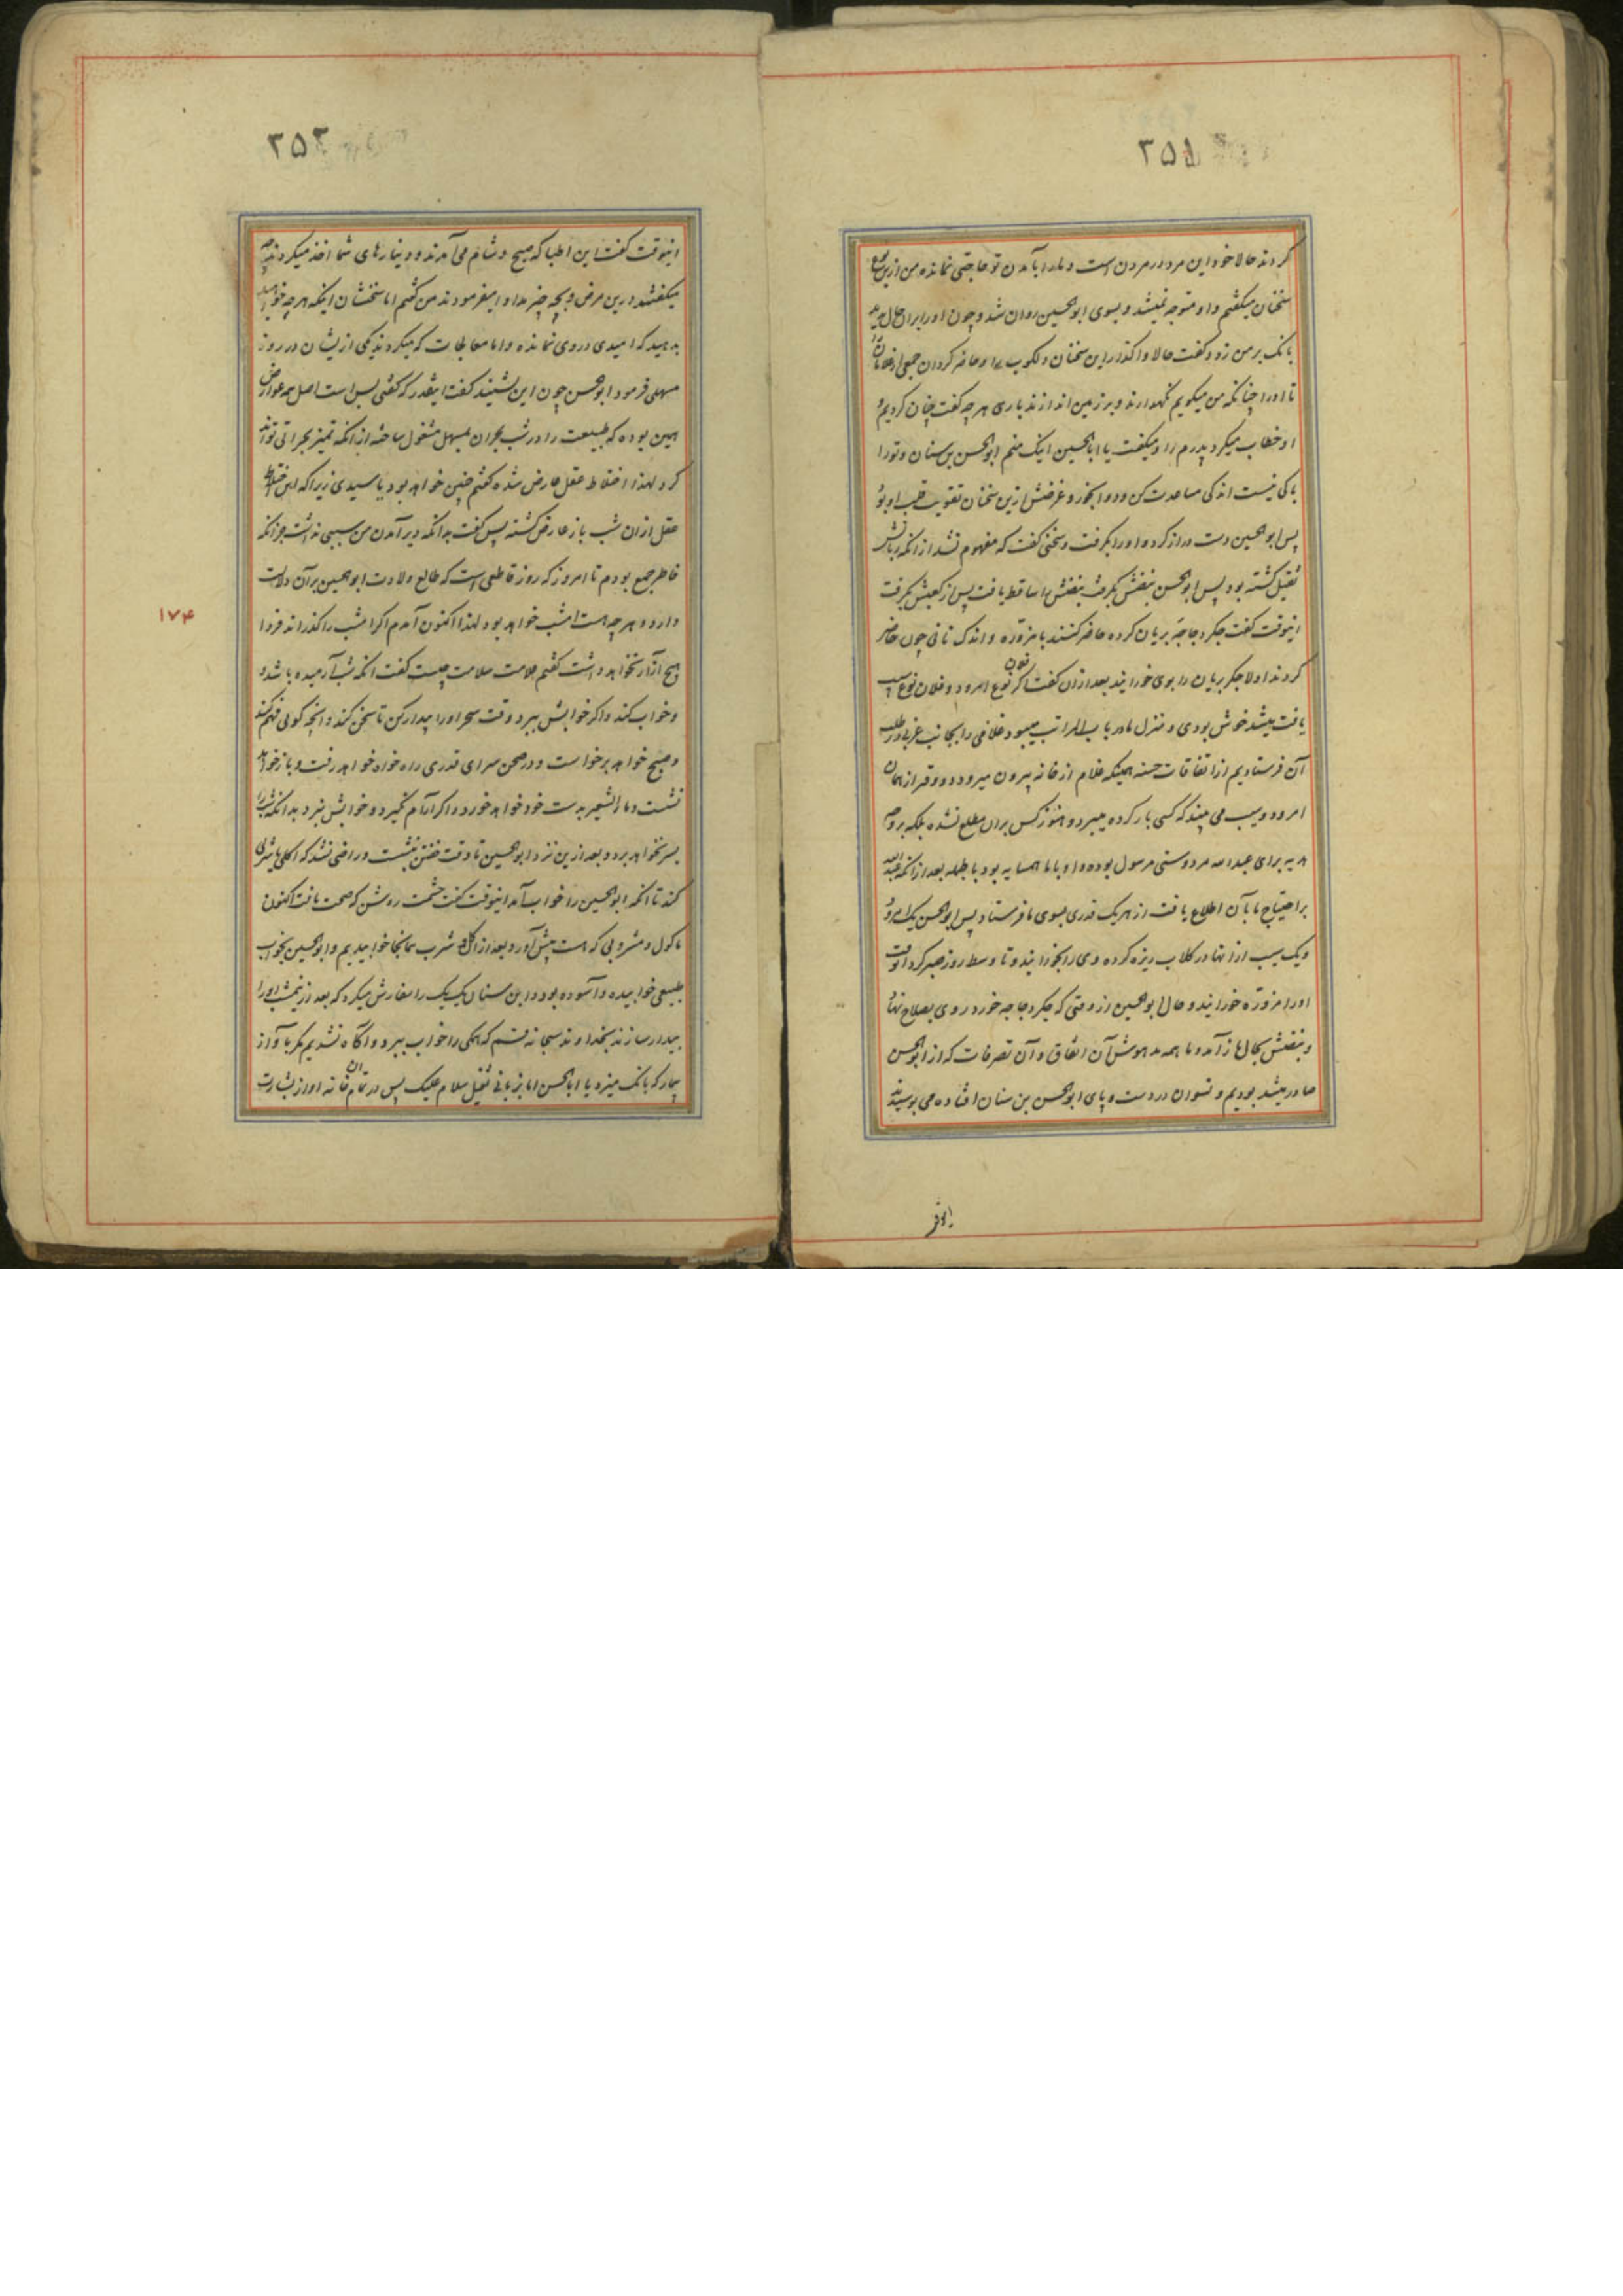 ۲۵۱
کردند حالا خود این مرد در مردن است و مارا بآمدن تو حاجتی نمانده من ازین
سخنان میگفتم و او متوجه نمیشد و بسوی ابوالحسین روان شد و چون او را بران حال دید
بانک بر من زد و گفت حالا واگذار این سخنان و لکوب را و حاضر گردان جمعی از غلامان
تا او را چنانکه من میگویم نگهدارند و بر زمین اندازند باری هرچه گفت چنان کردیم و
او خطاب میکرد پدرم را و میگفت یا ابا الحسین اینک منم ابوالحسن بن سنان و تو را
باکی نیست اندکی مساعدت کن و دوا بخور و غرضش ازین سخنان تقویت قلب او بود
پس ابوالحسین دست دراز کرد و او را بگرفت و سخنی گفت که مفهوم نشد از آنکه زبانش
ثقیل گشته بود پس ابوالحسن نبضش بگرفت نبضش را ساقط یافت پس از کعبش بگرفت
اینوقت گفت جگر دجاجهٔ بریان کرده حاضر کنند با مزوّره و اندک نانی چون حاضر
کردند اولا جگر بریان را بوی خورانید بعد ازان گفت اگر فلان نوع امرود و فلان نوع سیب
یافت میشد خوش بودی و منزل ما در باب المراتب میبود غلامی را بجانب غربی در طلب
آن فرستادیم از اتفاقات حسنه همینکه غلام از خانه بیرون میرود دو وقر از همان
امرود و سیب می بیند که کسی بار کرده میبرد و هنوز کس بران مطلع نشده بلکه بر وجه
هدیه برای عبدالله مردوستی مرسول بوده و او با ما همسایه بود بالجمله بعد از آنکه عبدالله
بر احتیاج ما بآن اطلاع یافت از هر یک قدری بسوی ما فرستاد پس ابوالحسن یک امرود
و یک سیب از آنها در کلاب ریزه کرده وی را بخورانید و تا وسط روز صبر کرد آنوقت
او را مزوّره خورانید و حال ابوالحسین از وقتی که جگر دجاجه خورد روی بصلاح نهاد
و نبضش بحال باز آمد و ما همه مدهوش آن اتفاق و آن تصرفات که از ابوالحسن
صادر میشد بودیم و نسوان در دست و پای ابوالحسن بن سنان افتاده می بوسیدند
اینوقت
۲۵۲
اینوقت گفت این اطبا که صبح و شام می آمدند و دینارهای شما اخذ میکردند چه
میگفتند درین مرض و بچه چیز مداوا میفرمودند من گفتم اما سخنشان اینکه هرچه خواهید
بدهید که امیدی در وی نمانده و اما معالجات که میکردند یکی از یشان در روز
مسهلی فرمود ابوالحسن چون این بشنید گفت اینقدر که گفتی بس است اصل همه عوارض
همین بوده که طبیعت را در شب بحران بمسهل مشغول ساخته از آنکه تمیز بحرانی تواند
کرد لهذا اختلاط عقل عارض شده گفتم چنین خواهد بود یا سیدی زیرا که این اختلاط
عقل ازان شب باز عارض گشته پس گفت بدانکه دیر آمدن من سببی نداشت جز آنکه
خاطر جمع بودم تا امروز که روز قاطعی است که طالع ولادت ابوالحسین بر آن دلالت
دارد و هرچه هست امشب خواهد بود لهذا اکنون آمدم اگر امشب را گذراند فردا
۱۷۴
هیچ آزار نخواهد داشت گفتم علامت سلامت چیست گفت آنکه شب آرمیده باشد و
و خواب کند و اگر خوابش ببرد وقت سحر او را بیدار کن تا سخن کند و آنچه گوئی فهم کند
و صبح خواهد برخواست و در صحن سرای قدری راه خواه خواهد رفت و باز خواهد
نشست و ماءالشعیر بدست خود خواهد خورد و اگر آرام نگیرد و خوابش نبرد بدانکه شب را
بسر نخواهد برد و بعد ازین نزد ابوالحسین تا وقت خفتن بنشست و راضی نشد که اکلی یا شربی
کند تا آنکه ابوالحسین را خواب آمد اینوقت گفت چشمت روشن که صحت یافت اکنون
ماکول و مشروبی که هست پیش آورد و بعد از اکل و شرب همانجا خوابیدیم و ابوالحسین بخواب
طبیعی خوابیده و آسوده بود و ابن سنان یک یک را سفارش میکرد که بعد از نیمشب او را
بیدار سازند بخداوند سبحانه قسم که همکی را خواب ببرد و آگاه نشدیم مگر باواز
بیمار که بانک میزد یا ابا الحسن اما بزبانی ثقیل سلام علیک پس در تمام آن خانه اواز بشارت